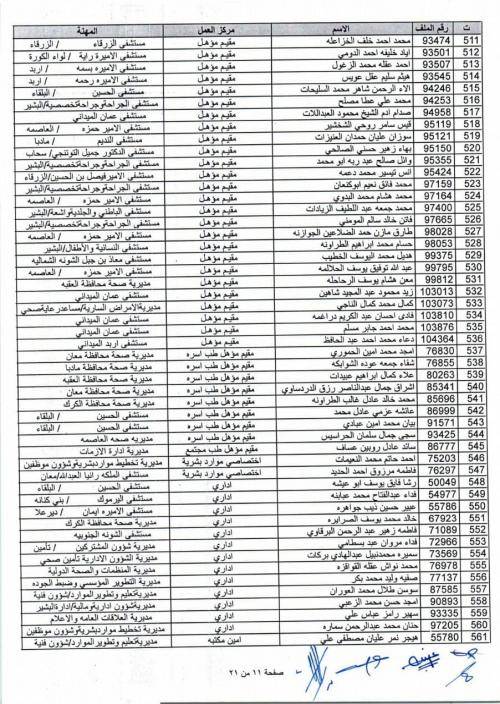 ت رقم الملف الاسم مركز العمل المهنة
511 93474 محمد احمد خلف الخزاعله مقيم مؤهل مستشفى الزرقاء / الزرقاء
512 93501 اياد خليفه احمد الدومي مقيم مؤهل مستشفى الاميرة راية / لواء الكورة
513 93507 احمد عقله محمد الزغول مقيم مؤهل مستشفى الاميره بسمه / اربد
514 93545 هيثم سليم عقل عويس مقيم مؤهل مستشفى الاميره رحمه / اربد
515 94246 الاء الرحمن شاهر محمد السليحات مقيم مؤهل مستشفى الحسين / البلقاء
516 94253 محمد علي عطا مصلح مقيم مؤهل مستشفى الجراحة/جراحة/تخصصية/البشير
517 94958 صدام ادم الشيخ محمود العبداللات مقيم مؤهل مستشفى عمان الميداني
518 95119 قيس سامر روحي الشخشير مقيم مؤهل مستشفى الامير حمزه / العاصمه
519 95121 سوزان عليان حمدان العنيزات مقيم مؤهل مستشفى النديم / مادبا
520 95150 بهاء زهير حسني الصالحي مقيم مؤهل مستشفى الدكتور جميل التوتنجي/ سحاب
521 95355 وائل صالح عبد ربه ابو محمد مقيم مؤهل مستشفى الجراحة/جراحة/تخصصية/البشير
522 95424 انس تيسير محمد دعمه مقيم مؤهل مستشفى الاميرفيصل بن الحسين/الزرقاء
523 97159 محمد فائق نعيم ابوكنعان مقيم مؤهل مستشفى الجراحة/جراحة/تخصصية/البشير
524 97164 محمد هشام محمد البدوي مقيم مؤهل مستشفى الامير حمزه / العاصمه
525 97400 محمد جمعه عبد اللطيف الزيادات مقيم مؤهل مستشفى الباطني والجلدية/البشير
526 97665 فاتن خالد سالم المومني مقيم مؤهل مستشفى الامير حمزه / العاصمه
527 98028 طارق مازن حمد الضلاعين الجوازنه مقيم مؤهل مستشفى الامير حمزه / العاصمه
528 98053 حسام محمد ابراهيم الطراونه مقيم مؤهل مستشفى النسائية والأطفال/البشير
529 99375 هديل محمد اليوسف الخطيب مقيم مؤهل مستشفى معاذ بن جبل الشونه الشماليه
530 99795 عبد الله توفيق يوسف الحلالمه مقيم مؤهل مستشفى الامير حمزه / العاصمه
531 99812 معن هشام يوسف الرحاحله مقيم مؤهل مديرية صحة محافظة العقبه
532 103013 زيد محمود عبد المجيد شاهين مقيم مؤهل مستشفى عمان الميداني
533 103073 كمال محمد كمال الناجي مقيم مؤهل مديرية/الامراض السارية/مساعدرعايةصحي
534 103810 فادى احسان عبد الكريم دراغمه مقيم مؤهل مستشفى عمان الميداني
535 103876 محمد احمد جابر مسلم مقيم مؤهل مستشفى عمان الميداني
536 104364 دعاء محمد احمد عبد الحافظ مقيم مؤهل مستشفى اربد الميداني
537 76830 امجد محمد امين الحموري مقيم مؤهل طب اسره مديرية صحة محافظة معان
538 76855 شفاء جمعه عوده الشوابكه مقيم مؤهل طب اسره مديرية صحة محافظة مادبا
539 80263 علاء كمال ابراهيم عبيدات مقيم مؤهل طب اسره مديرية صحة محافظة العقبه
540 85341 اشراق جمال عبدالناصر رزق الدردساوي مقيم مؤهل طب اسره مديرية صحة محافظة الكرك
541 85696 محمد خالد عادل غالب الطراونه مقيم مؤهل طب اسره مديرية صحة محافظة الكرك
542 86999 عائشه عزمي عادل محمد مقيم مؤهل طب اسره مستشفى الحسين / البلقاء
543 91571 بيان محمد امين عبادي مقيم مؤهل طب اسره مستشفى الحسين / البلقاء
544 93425 سجى جمال سلمان الحراسيس مقيم مؤهل طب اسره مديريه صحه العاصمه
545 86777 سائد عادل روبين عساف مقيم مؤهل طب مجتمع مديرية ادارة الازمات
546 75203 احمد حاتم محمد النعيمات اختصاصي موارد بشرية مديرية تخطيط مواردبشريةوشؤون موظفين
547 76297 فاطمه مرزوق احمد الحديد اختصاصي موارد بشرية مستشفى الملكه رانيا العبدالله/معان
548 50049 رشا فايق ابو عيشه اداري مستشفى الحسين / البلقاء
549 54977 فداء عبدالفتاح محمد عبابنه اداري مستشفى اليرموك / بني كنانه
550 55786 عبير حسين ذيب جواهره اداري مستشفى الاميره ايمان / ديرعلا
551 67923 خالد محمد يوسف الصرايره اداري مديرية صحة محافظة الكرك
552 71089 فاطمه زهير عبد الرحمن البرقاوي اداري مستشفى الشونه الجنوبيه
553 72966 فداء مروان عبد بسطامي اداري مديرية شؤون المشتركين / تأمين
554 73569 سميره محمدنبيل عبدالهادي بركات اداري مديرية الشؤون الادارية تأمين صحي
555 76978 محمد نواش عقله القواقزه اداري مديرية المنظمات والصحة الدولية
556 77137 صفيه وليد محمد بكر اداري مديرية التطوير المؤسسي وضبط الجوده
557 87585 سوسن طلال محمد العوران اداري مديرية/تعليم وتطوير الموارد/شؤون فنية
558 90893 امجد حسن محمد الزعبي اداري مديرية/شؤون ادارية ومالية/ادارةالبشير
559 93335 سهير رامز عباس علي اداري مديرية العلاقات العامه والاعلام
560 97205 حنان محمد عبدالرحمن سماره اداري مديرية تخطيط مواردبشريةوشؤون موظفين
561 55780 هيجر نمر عليان مصطفى علي امين مكتبه مديرية/تعليم وتطوير الموارد/شؤون فنية
صفحة ١١ من ٢١